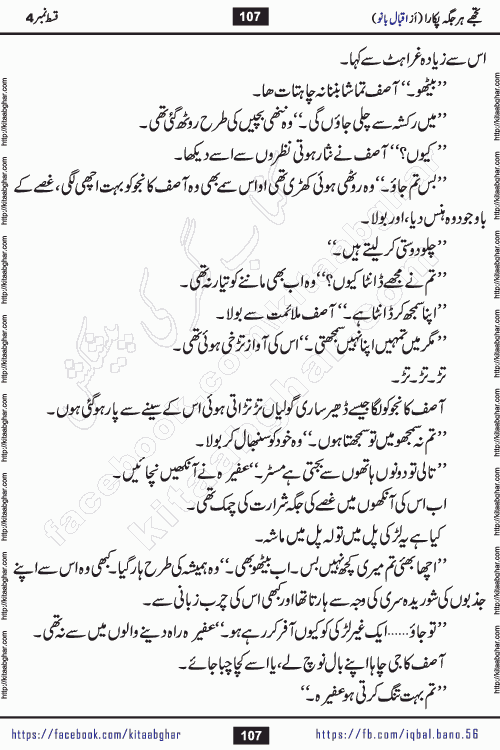 تجھے ہر جگہ پکارا (از اقبال بانو)
107
قسط نمبر 4
اس سے زیادہ غراہٹ سے کہا۔
’’بیٹھو۔‘‘ آصف تماشا بننا نہ چاہتات ھا۔
’’میں رکشہ سے چلی جاؤں گی۔‘‘ وہ ننھی بچیں کی طرح روٹھ گئی تھی۔
’’کیوں؟‘‘ آصف نے نثار ہوتی نظروں سے اسے دیکھا۔
’’بس تم جاؤ۔‘‘ وہ روٹھی ہوئی کھڑی تھی او اس سے بھی وہ آصف کانجو کو بہت اچھی لگی، غصے کے
باوجود وہ ہنس دیا، اور بولا۔
’’چلو دوستی کر لیتے ہیں۔‘‘
’’تم نے مجھے ڈانٹا کیوں؟‘‘ وہ اب بھی ماننے کو تیار نہ تھی۔
’’اپنا سمجھ کر ڈانٹا ہے۔‘‘ آصف ملائمت سے بولا۔
’’مگر میں تمہیں اپنا نہیں سمجھتی۔‘‘ اس کی آواز تڑخی ہوئی تھی۔
تڑ۔تڑ۔تڑ۔
آصف کانجو کو لگا جیسے ڈھیر ساری گولیاں تڑتڑاتی ہوئی اس کے سینے سے پار ہو گئی ہوں۔
’’تم نہ سمجھو میں تو سمجھتا ہوں۔‘‘ وہ خود کو سنبھال کر بولا۔
’’تالی تو دونوں ہاتھوں سے بجتی ہے مسٹر۔‘‘ عفیرہ نے آنکھیں نچائیں۔
اب اس کی آنکھوں میں غصے کی جگہ شرارت کی چمک تھی۔
کیا ہے یہ لڑکی پل میں تولہ پل میں ماشہ۔
’’اچھا بھئی تم میری کچھ نہیں بس۔ اب بیٹھو بھی۔‘‘ وہ ہمیشہ کی طرح ہار گیا۔ کبھی وہ اس سے اپنے
جذبوں کی شوریدہ سری کی وجہ سے ہارتا تھا اور کبھی اس کی چرب زبانی سے۔
’’تو جاؤ......ایک غیر لڑکی کو کیوں آفر کر رہے ہو۔‘‘ عفیرہ راہ دینے والوں میں سے نہ تھی۔
آصف کا جی چاہا اپنے بال نوچ لے، یا اسے کچا چبا جائے۔
’’تم بہت تنگ کرتی ہو عفیرہ۔‘‘
کتاب گھر کی پیشکش
facebook.com/kitaabghar
kitaabghar.com
http://kitaabghar.com
https://facebook.com/kitaabghar
107
https://fb.com/iqbal.bano.56